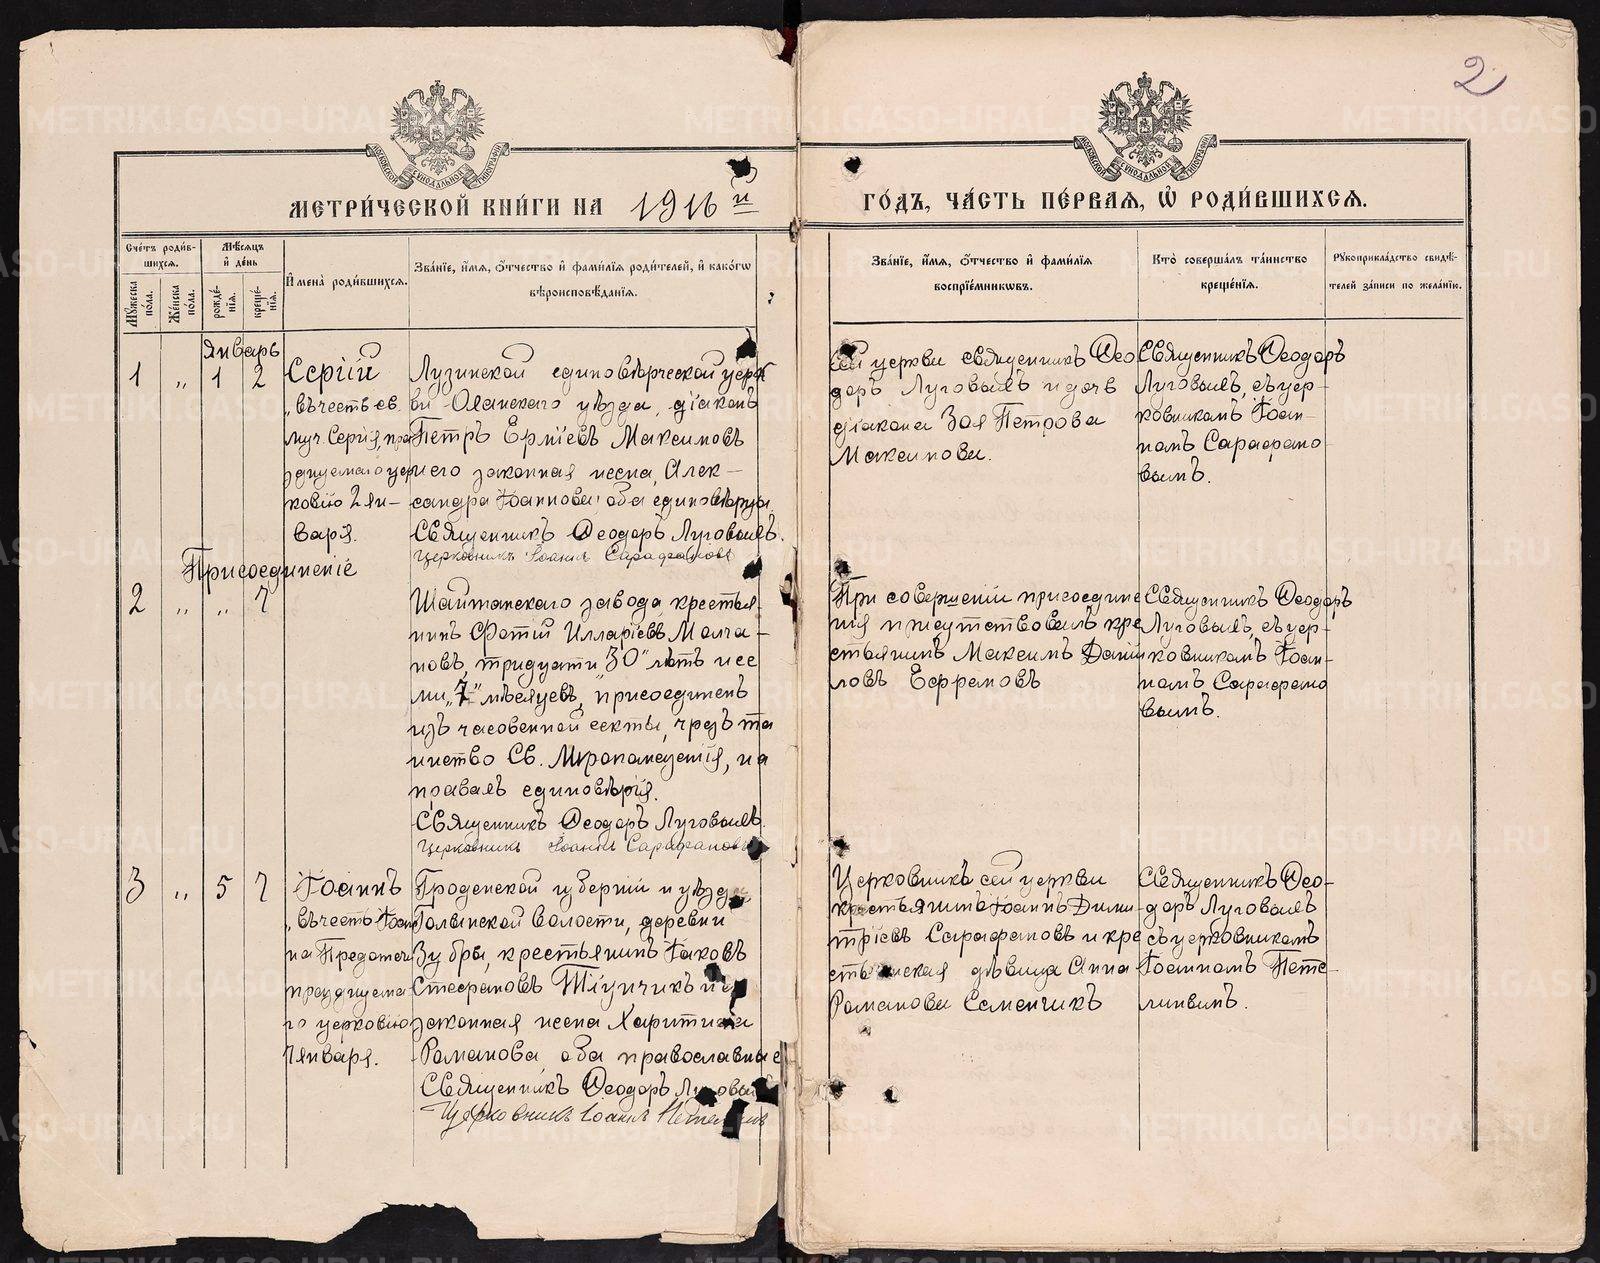 2
МОСКОВСКОЙ СѴНОДАЛЬНОЙ ТИПОГРАФІИ
МОСКОВСКОЙ СѴНОДАЛЬНОЙ ТИПОГРАФІИ
МЕТРИ́ЧЕСКОЙ КНИ́ГИ НА 1916й
ГО́ДЪ, ЧА́СТЬ ПЕ́РВАѦ, Ѡ РОДИ́ВШИХСѦ.
Сче́тъ роди́в-
шихсѧ.
Мꙋ́жеска по́ла.
Же́нска по́ла.
Мѣ́сѧцъ
и҆ де́нь
рожде́-
нїѧ.
креще́-
нїѧ.
И҆мена̀ роди́вшихсѧ.
Зва́нїе, и҆́мѧ, ѻ҆́тчество и҆ фами́лїѧ роди́телей, и҆ како́гѡ
вѣроисповѣ́данїѧ.
Зва́нїе, и҆́мѧ, ѻ҆́тчество и҆ фами́лїѧ
воспрїе́мникѡвъ.
Кто̀ соверша́лъ та́инство
креще́нїѧ.
Рꙋкоприкла́дство свидѣ́-
телей за́писи по жела́нїю.
Январь
1 „ 1 2
Сергій
„въ честь св.
муч. Сергія, пра
зднуемаго цер
ковію 2 ян-
варя.
Лузинской единовѣрческой церк
ви Оханскаго уѣзда, діаконъ
Петръ Ерміевъ Максимовъ
и его законная жена, Алек-
сандра Іоаннова оба единовѣрцы.
Священникъ Ѳеодоръ Луговыхъ.
Церковникъ Іоаннъ Сарафановъ
Сей церкви священникъ Ѳео
доръ Луговыхъ и дочь
діакона Зоя Петрова
Максимова.
Священникъ Ѳеодоръ
Луговыхъ, съ цер-
ковникомъ Іоан-
номъ Сарафано-
вымъ.
Присоединеніе
2 „ „ 7
Шайтанскаго завода крестья-
нинъ Фотій Илларіевъ Молча-
новъ, тридцати „30“ лѣтъ и се
ми „7“ мѣсяцевъ, присоединенъ
изъ часовенной секты, чрезъ та
инство Св. Мѵропомазанія, на
правахъ единовѣрія.
Священникъ Ѳеодоръ Луговыхъ.
Церковникъ Іоаннъ Сарафановъ
При совершеніи присоедине
нія присутствовалъ кре
стьянинъ Максимъ Дани
ловъ Ефремовъ
Священникъ Ѳеодоръ
Луговыхъ, съ цер-
ковникомъ Іоан-
номъ Сарафано
вымъ.
3 „ 5 7
Іоаннъ
„въ честь Іоан
на Предотечи
празднуема
го церковію
7 января.
Гродненской губерніи и уѣзда
волости, деревни
Зубры, крестьянинъ Іаковъ
Стефановъ и его
законная жена Харитина
Романова оба православные
Священникъ Ѳеодоръ Луговыхъ
Церковникъ Іоаннъ
Церковникъ сей церкви
крестьянинъ Іоаннъ Дими
тріевъ Сарафановъ и кре
стьянская дѣвица Анна
Романова Семенчикъ
Священникъ Ѳео-
доръ Луговыхъ
съ церковникомъ
Іоанномъ Пете-
линымъ.